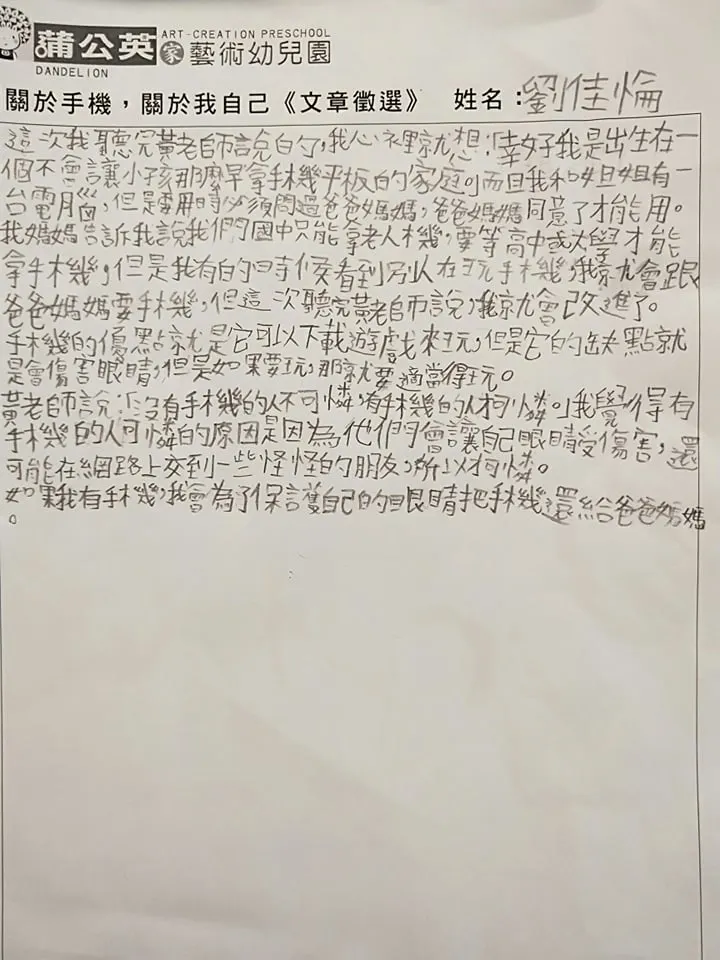 ART-CREATION PRESCHOOL
蒲公英家藝術幼兒園
DANDELION
關於手機，關於我自己《文章徵選》 姓名：劉佳惀
這次我聽完黃老師說的，我心裡就想：「幸好我是出生在一
個不會讓小孩那麼早拿手機平板的家庭。」而且我和姐姐有一
台電腦，但是要用時必須問過爸爸媽媽，爸爸媽媽同意了才能用。
我媽媽告訴我說我們國中只能拿老人機，要等高中或大學才能
拿手機，但是我有的時候看到別人在玩手機，我就會跟
爸爸媽媽要手機，但這次聽完黃老師說，我就會改進了。
手機的優點就是它可以下載遊戲來玩，但是它的缺點就
是會傷害眼睛，但是如果要玩，那就要適當得玩。
黃老師說：「沒有手機的人不可憐，有手機的人才可憐。」我覺得有
手機的人可憐的原因是因為他們會讓自己眼睛受傷害，還
可能在網路上交到一些怪怪的朋友，所以才可憐。
如果我有手機，我會為了保護自己的眼睛把手機還給爸爸媽媽
。